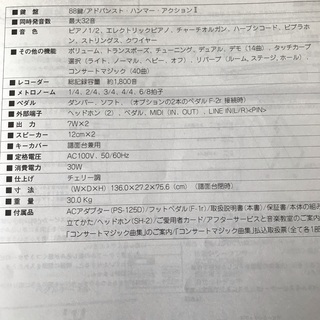 ■鍵 盤 88鍵/アドバンスト・ハンマー・アクションⅡ
■同時発音数 最大32音
■音 色 ピアノ1/2、エレクトリックピアノ、チャーチオルガン、ハープシコード、ビブラホ
ン、ストリングス、クワイヤー
■その他の機能 ボリューム、トランスポーズ、チューニング、デュアル、デモ(14曲)、タッチカーブ
選択(ライト、ノーマル、ヘビー、オフ)、リバーブ(ルーム、ステージ、ホール)、
コンサートマジック(40曲)
■レコーダー 総記録容量 約1,800音
■メトロノーム 1/4、2/4、3/4、4/4、6/8拍子
■ペダル ダンパー、ソフト、(オプションの2本のペダル F-2r 接続時)
■外部端子 ヘッドホン(2)、ペダル、MIDI(IN、OUT)、LINE IN(L/R)<PIN>
■出 力 7W×2
■スピーカー 12cm×2
■キーカバー 譜面台兼用
■定格電圧 AC100V、50/60Hz
■消費電力 30W
■仕上げ チェリー調
■寸 法 (W×D×H) 136.0×27.2×75.6(cm) (譜面台閉時)
■重 量 30.0 Kg
■付属品 ACアダプター(PS-125D)/フットペダル(F-1r)/取扱説明書(本書)/保証書/本体の組み
立てかた/ヘッドホン(SH-2)/ご愛用者カード/アフターサービスと音楽教室のご案内/
「コンサートマジック曲集」のご案内/「コンサートマジック曲集」払込取扱票(全て各1部